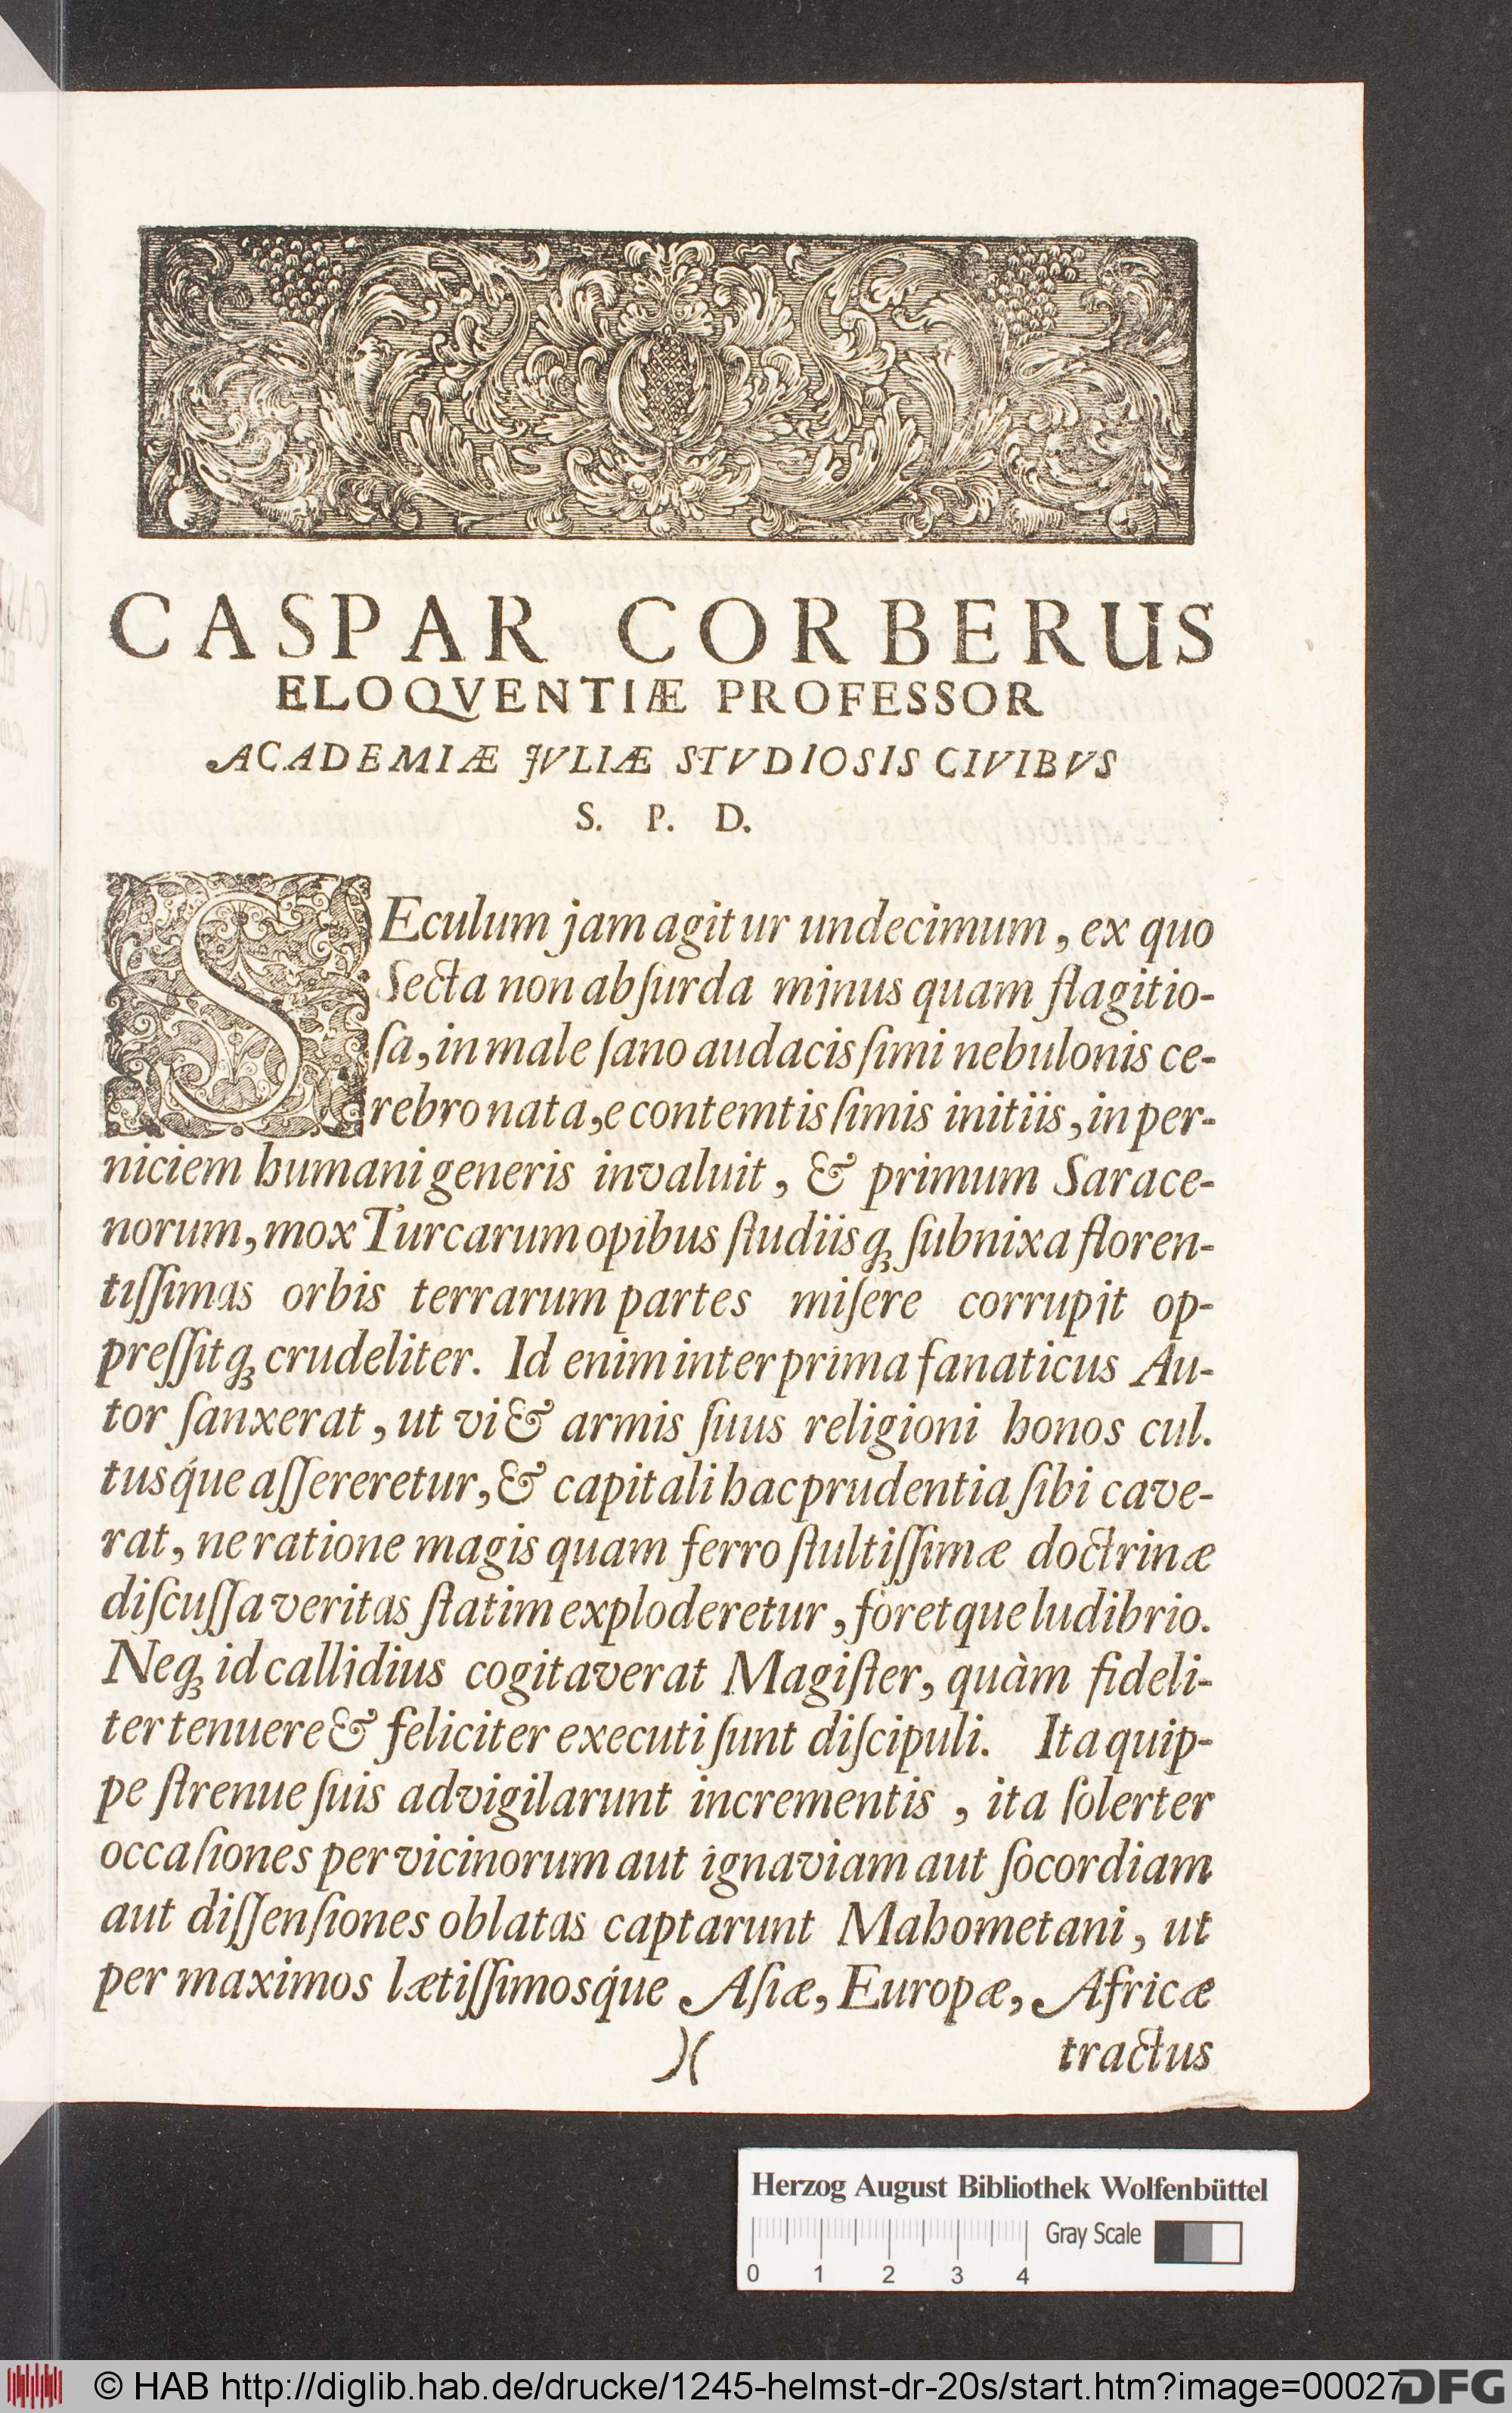 CASPAR CORBERUS
ELOQVENTIÆ PROFESSOR
ACADEMIÆ JVLIÆ STVDIOSIS CIVIBVS
S. P. D.
SEculum jam agitur undecimum, ex quo
Secta non abſurda minus quam flagitio-
ſa, in male ſano audacisſimi nebulonis ce-
rebro nata, e contemtisſimis initiis, in per-
niciem humani generis invaluit, & primum Sarace-
norum, mox Turcarum opibus ſtudiisq; ſubnixa floren-
tiſſimas orbis terrarum partes miſere corrupit op-
preſſitq; crudeliter. Id enim inter prima fanaticus Au-
tor ſanxerat, ut vi & armis ſuus religioni honos cul.
tusq́ue aſſereretur, & capitali hac prudentia ſibi cave-
rat, ne ratione magis quam ferro ſtultiſſimæ doctrinæ
diſcuſſa veritas ſtatim exploderetur, foretque ludibrio.
Neq; id callidius cogitaverat Magiſter, quàm fideli-
ter tenuere & feliciter executi ſunt diſcipuli. Ita quip-
pe ſtrenue ſuis advigilarunt incrementis, ita ſolerter
occaſiones per vicinorum aut ignaviam aut ſocordiam
aut diſſenſiones oblatas captarunt Mahometani, ut
per maximos lætiſſimosq́ue Aſiæ, Europæ, Africæ
)(
tractus
Herzog August Bibliothek Wolfenbüttel
Gray Scale
0 1 2 3 4
© HAB http://diglib.hab.de/drucke/1245-helmst-dr-20s/start.htm?image=00027
DFG